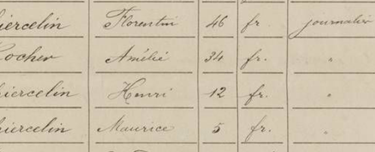 iercelin Florentin 46 fr. journalier
ocher Amélie 34 fr. "
iercelin Henri 12 fr. "
iercelin Maurice 5 fr. "